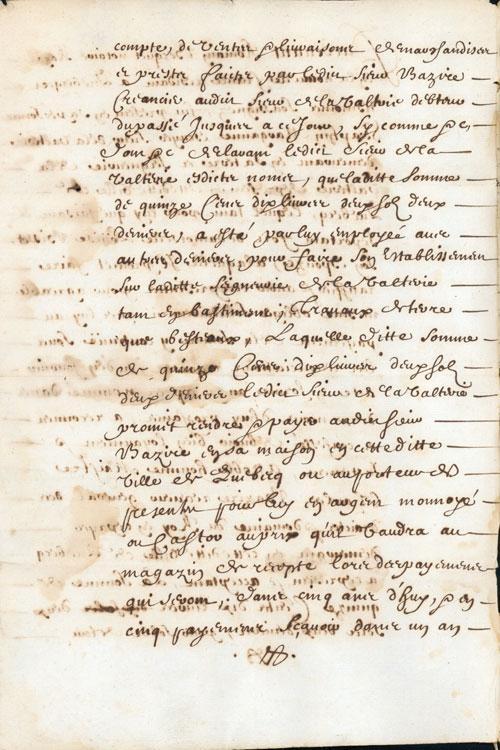 compte, de ventes & livraisons de marchandises
et prests faictes par ledict sieur Bazire
creancier audict sieur de la Valterie debteur
du passé jusques a ce jour, sy comme
et ledict sieur de la
Valterie esdicts noms, que laditte somme
de quinze Cens dix livres deux sols deux
deniers, a esté par luy employée avec
autres deniers pour faire son Establissement
sur laditte seigneurie de la Valterie
tant en bastimens, Travaux de terre
que bestiaux, Laquelle ditte somme
de quinze Cens dix livres deux sols
deux deniers ledict sieur de la Valterie
promet rendre & payer audict sieur
Bazire en sa maison en cette ditte
ville de Quebecq ou au porteur des
presentes pour luy en argent monnoyé
ou Castor au prix qu'il vaudra au
magazin de recepte lors des payemens
qui seront, dans cinq ans d'huy, en
cinq payemens sçavoir dans un an